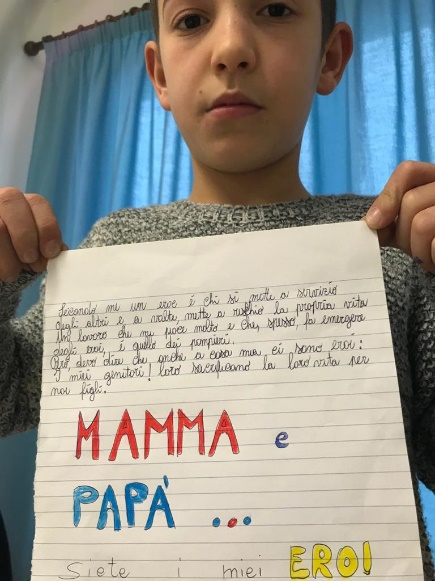 Secondo me un eroe è chi si mette a servizio
degli altri e a volte, mette a rischio la propria vita
Un lavoro che mi piace molto e che, spesso, fa emergere
degli eroi, è quello dei pompieri.
Però, devo dire che anche a casa mia, ci sono eroi:
I miei genitori! loro sacrificano la loro vita per
noi figli.
MAMMA e
PAPÀ ...
Siete i miei EROI